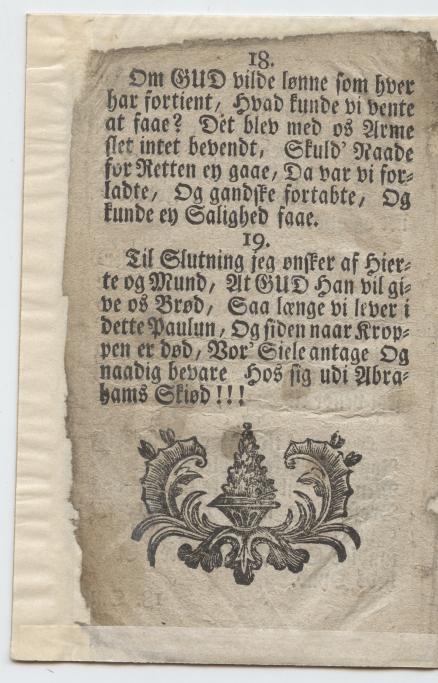 18.
Om GUD vilde lønne som hver
har fortient, Hvad kunde vi vente
at faae? Det blev med os Arme
slet intet bevendt, Skuld' Naade
for Retten ey gaae, Da var vi for-
ladte, Og gandske fortabte, Og
kunde ey Salighed faae.
19.
Til Slutning jeg ønsker af Hier-
te og Mund, At GUD Han vil gi-
ve os Brød, Saa længe vi lever i
dette Paulun, Og siden naar Krop-
pen er død, Vor' Siele antage Og
naadig bevare Hos sig udi Abra-
hams Skiød!!!